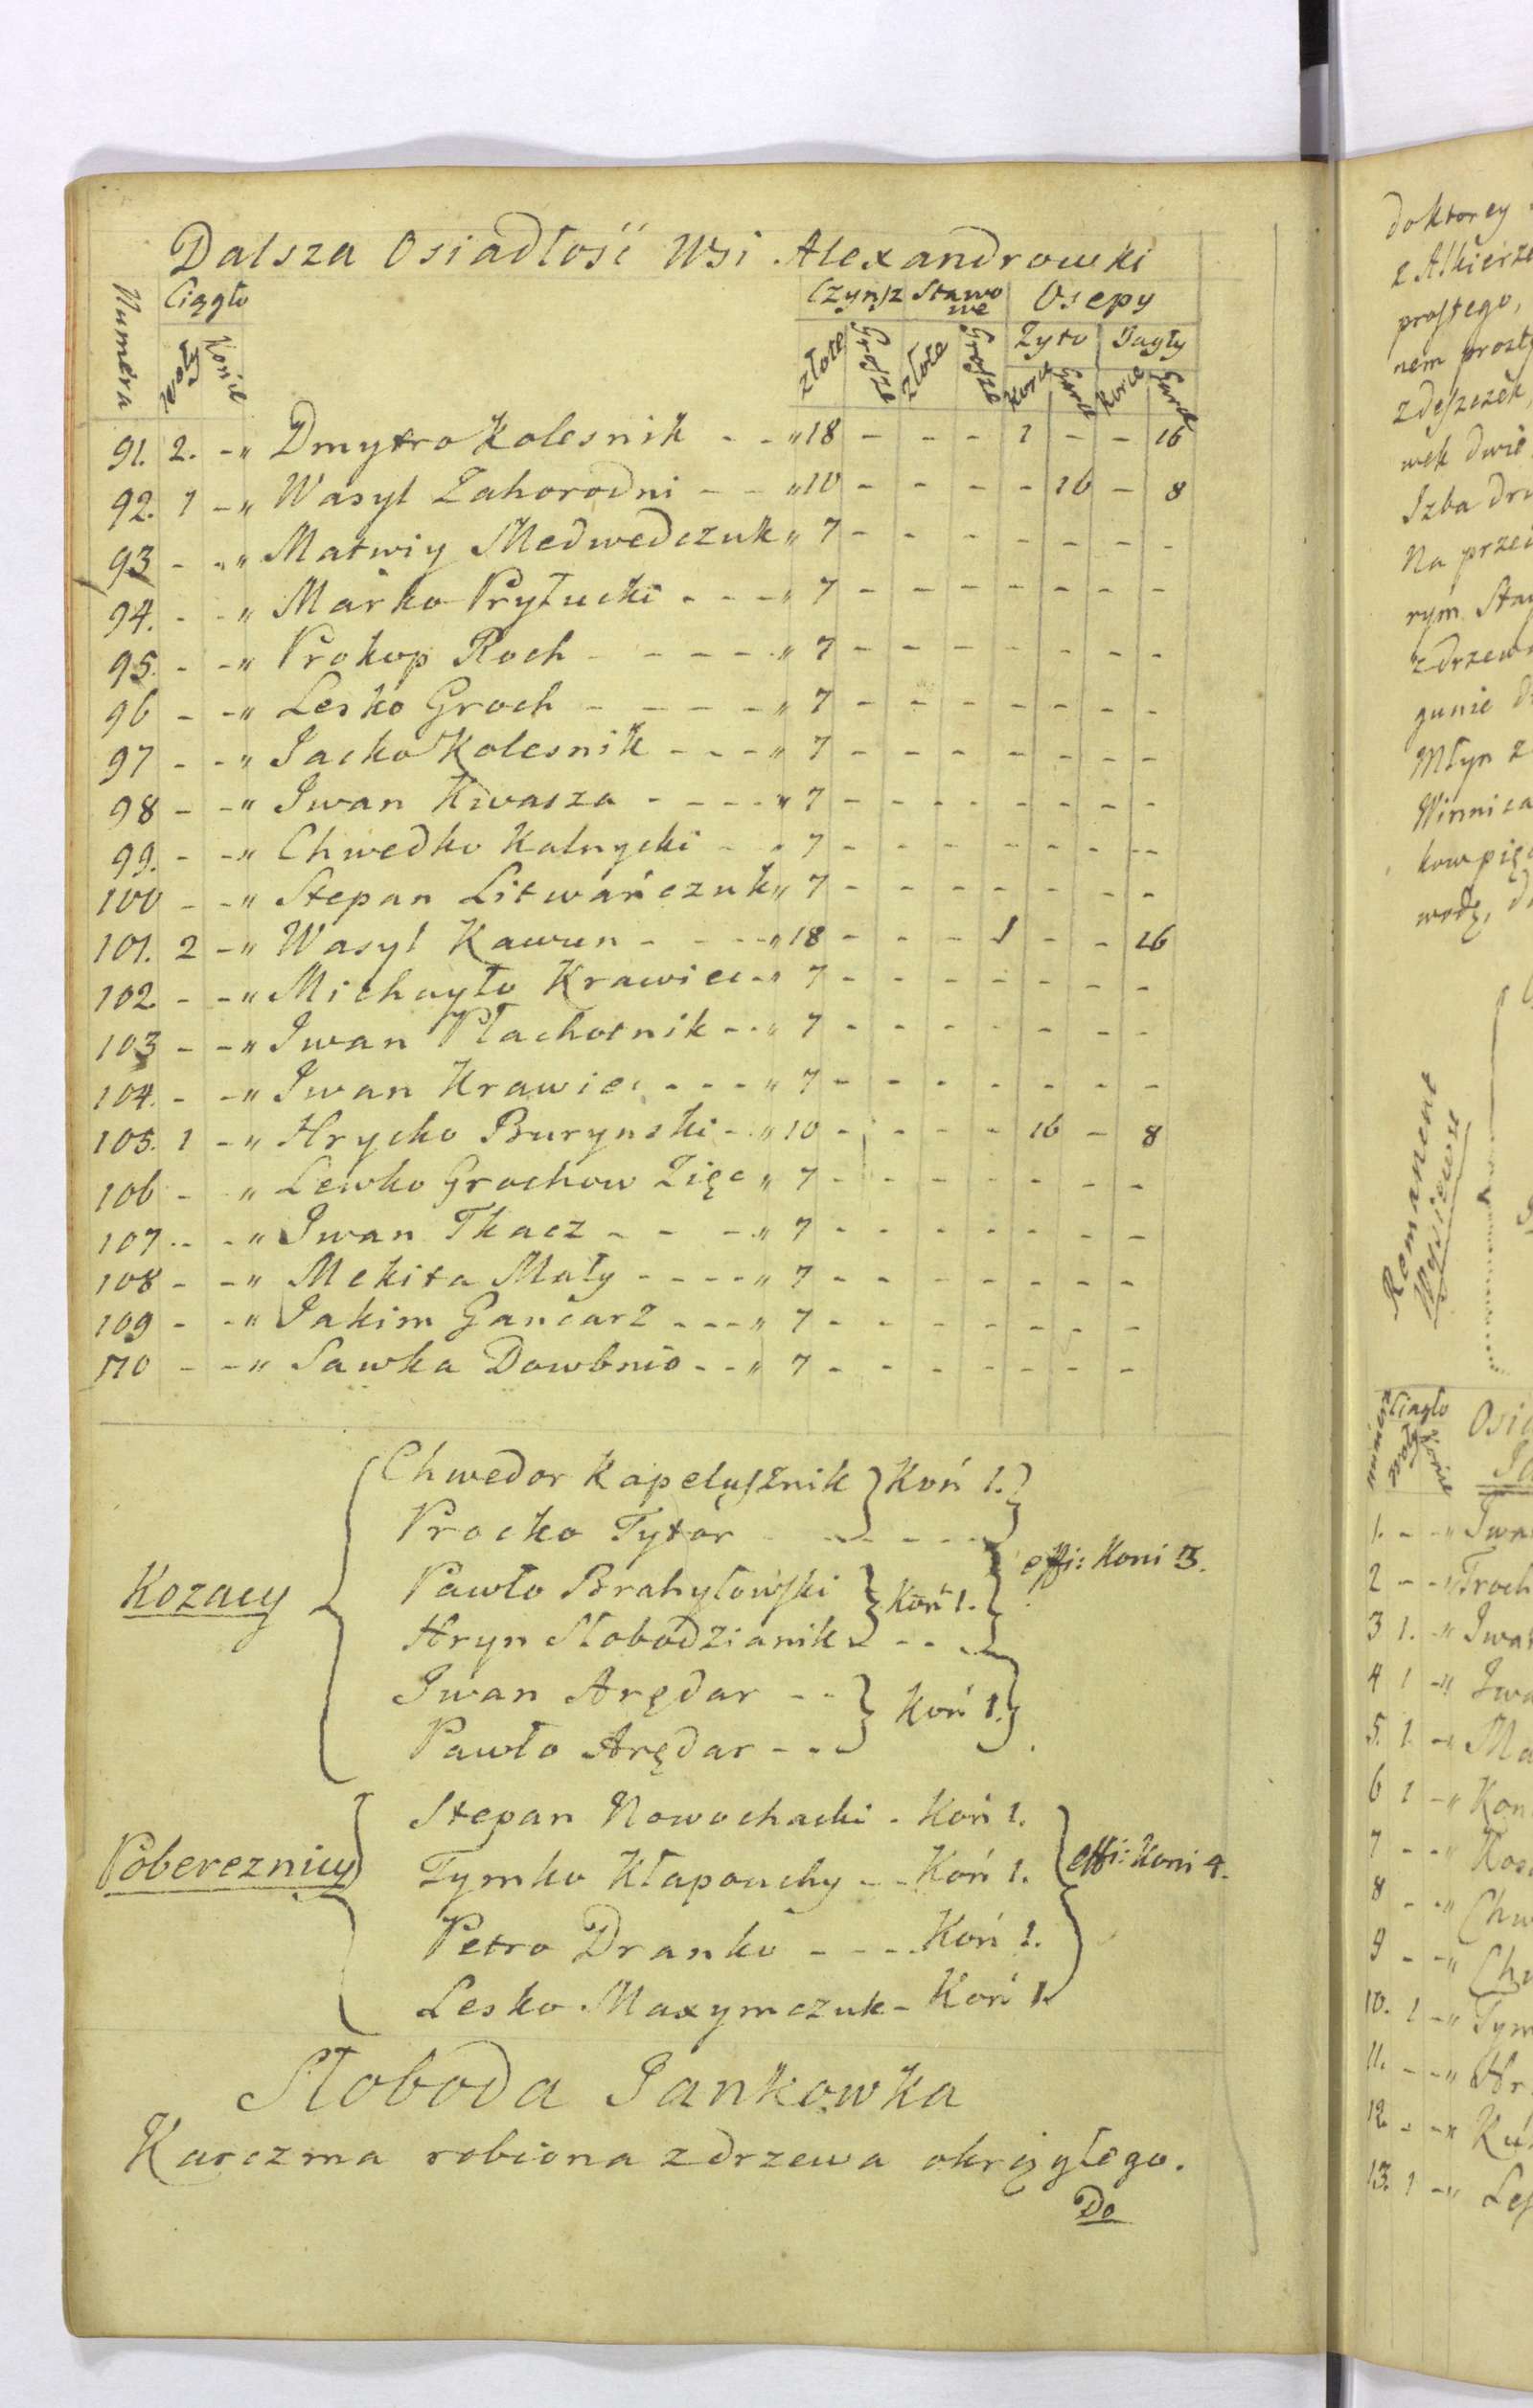 Dalsza Osiadłość Wsi Alexandrowki
Numera Ciągło Czynsz Stawowe Osepy
Woły Konie złote Grosze złote Grosze Zyto Jagły
Korce Garce Korce Garce
91. 2. - „ Dmytro Kolesnik - - „ 18 - - - 1 - - 16
92. 1 - „ Wasyl Zahorodni - - „ 10 - - - - 16 - 8
93 - - „ Matwiy Medwedczuk „ 7 - - - - - - -
94. - - „ Marko Pryłucki - - - „ 7 - - - - - - -
95. - - „ Prokop Roch - - - - - „ 7 - - - - - - -
96 - - „ Lesko Groch - - - - - „ 7 - - - - - - -
97 - - „ Jacko Kolesnik - - - - „ 7 - - - - - - -
98 - - „ Iwan Kwasza - - - - „ 7 - - - - - - -
99. - - „ Chwedko Kalnycki - - „ 7 - - - - - - - -
100 - - „ Stepan Litwańczuk „ 7 - - - - - - -
101. 2 - „ Wasyl Kawun - - - - „ 18 - - - 1 - - 16
102. - - „ Michayło Krawiec - „ 7 - - - - - - -
103 - - „ Iwan Płachotnik - - „ 7 - - - - - - -
104. - - „ Iwan Krawiec - - - „ 7 - - - - - - -
105. 1 - „ Hrycko Burynski - „ 10 - - - - 16 - 8
106 - „ Lewko Grochow Zięc „ 7 - - - - - - -
107 - - „ Iwan Tkacz - - - „ 7 - - - - - - -
108 - - „ Mekita Mały - - - - „ 7 - - - - - - -
109 - - „ Jakim Gancarz - - - „ 7 - - - - - - -
110 - - „ Sawka Dowbnio - - „ 7 - - - - - - -
Chwedor Kapelusznik Koń 1.
Procko Tytor - - - - - -
Kozacy Pawło Brahyłowski Koń 1. effi: Koni 3.
Hryn Słobodzianik - - -
Iwan Arędar - - Koń 1.
Pawło Arędar - -
Stepan Nowochacki - Koń 1.
Pobereznicy Tymko Kłapouchy - - Koń 1. effi: Koni 4.
Petro Dranko - - - - Koń 1.
Lesko Maxymczuk - Koń 1.
Słoboda Jankowka
Karczma robiona z drzewa okrągłego.
Do
doktorey
z Alkierze
prostego,
nem prosty
z deszczek,
wek dwie
Izba
Na przeci
rym
z drzewa
gunie
Młyn z
Winnica
Remanent
Ciągło
Woły
1. - - „ Iwa
2 - - „ Troch
3 1. - „ Iwa
4 1 - „ Iwa
5. 1. - „ Ma
6 1 - „ Kon
7 - - „ Kos
8 - - „ Chw
9 - - „
10. 1 - „ Tym
11. - - „ Hr
12. - - „
13. 1 - „ Les